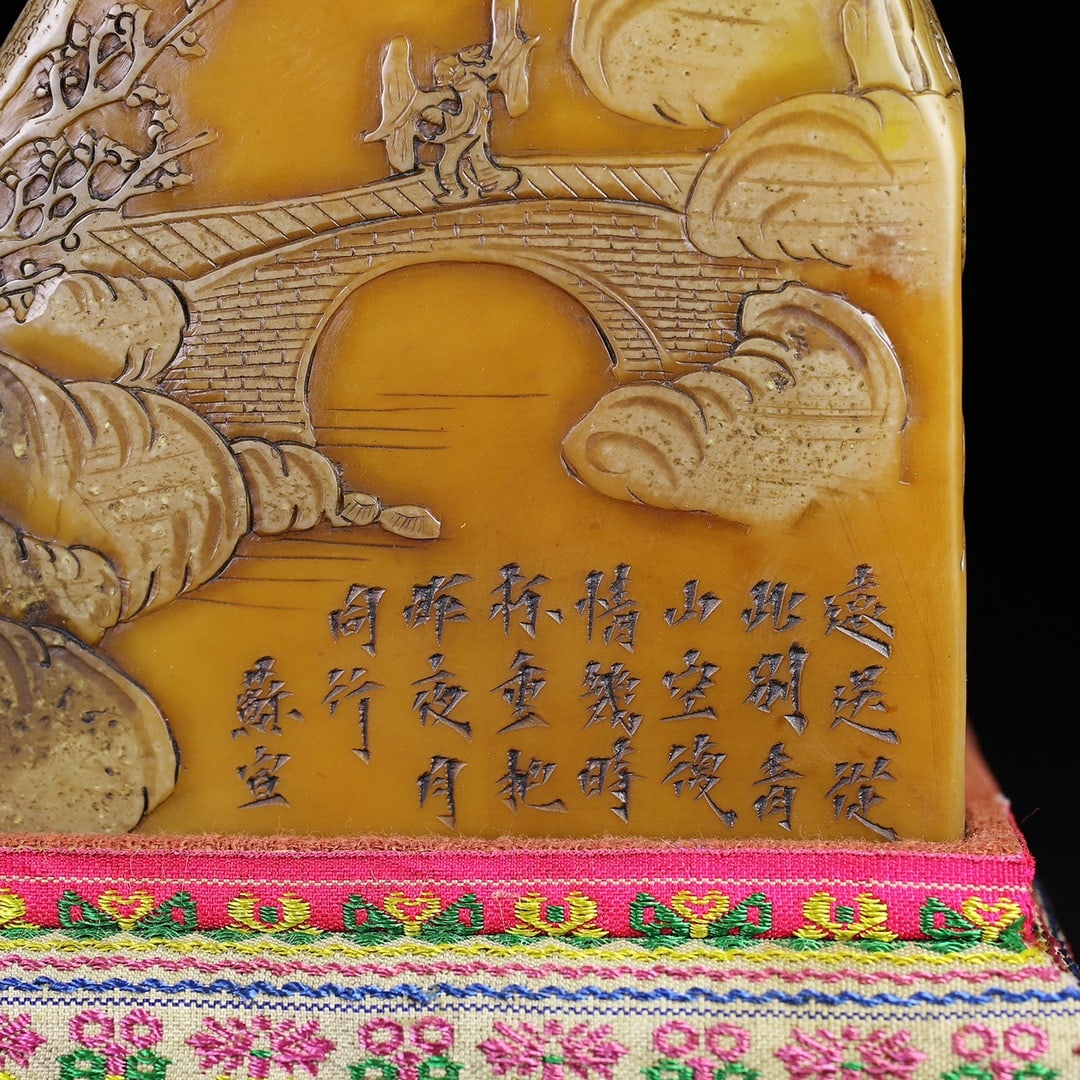 遠送從
此別青
山空復
情幾時
杯重把
昨夜月
同行
蘇宣